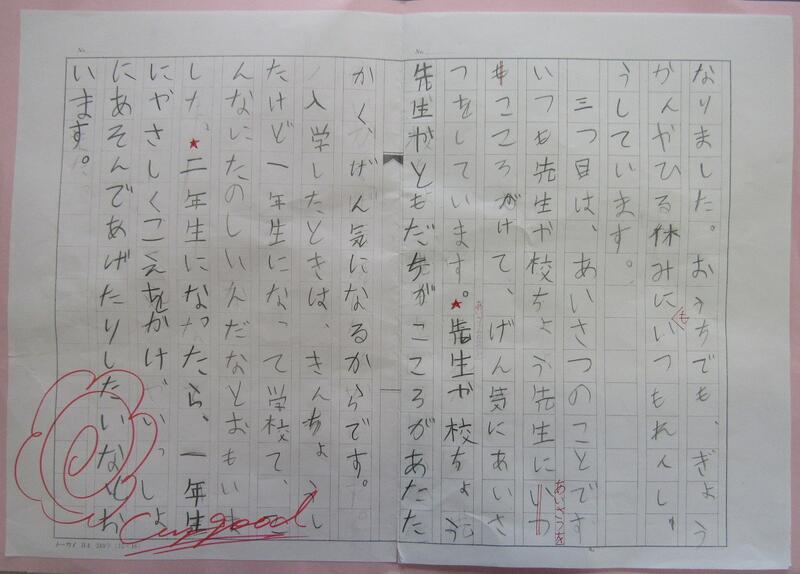 なりました。おうちでも、ぎょう
かんやひる休みにいつもれんし
も
うしています。
三つ目は、あいさつのことです
いつも先生や校ちょう先生にいつ
あいさつを
もこころがけて、げん気にあいさ
つをしています。★先生や校ちょう
先生やともだちがこころがあたた
かく、げん気になるからです。
入学したときは、きんちょうし
たけど一年生になって学校て、こ
んなにたのしいんだなとおもいま
した。★二年生になったら、一年生
にやさしくこえをかけ、いっしょ
にあそんであげたりしたいなとお
います。
good